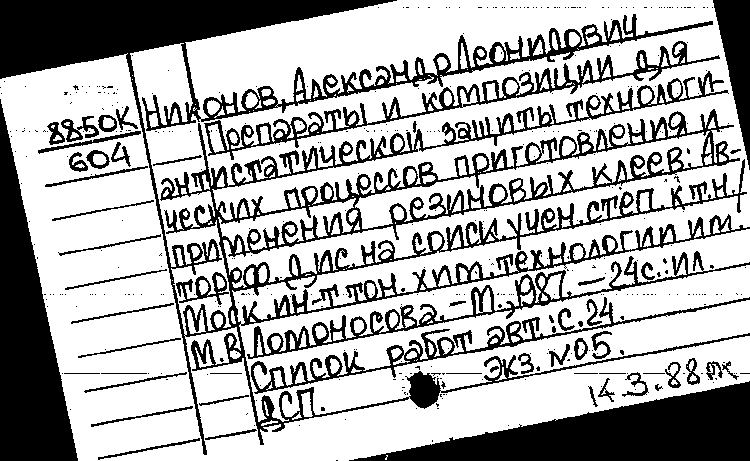 Никонов, Александр Леонидович.
88-50К
604
Препараты и композиции для
антистатической защиты технологи-
ческих процессов приготовления и
применения резиновых клеев: Ав-
тореф. дис. на соиск. учен. степ. к.т.н./
Моск. ин-т тон. хим. технологии им.
М.В. Ломоносова. - М., 1987. - 24с.: ил.
Список работ авт.: с. 24.
ДСП. Экз. N05.
14.3.88